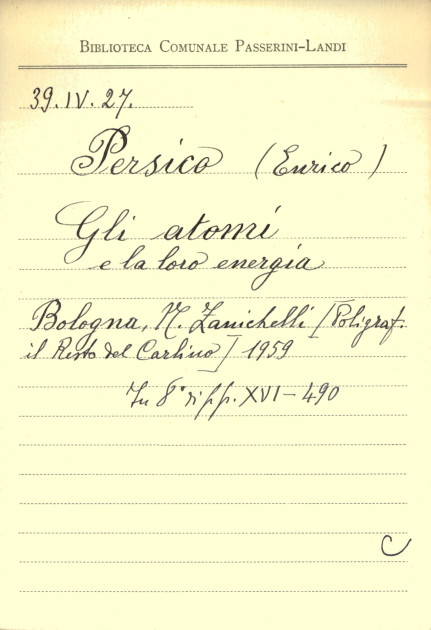 BIBLIOTECA COMUNALE PASSERINI-LANDI
39.IV.27.
Persico (Enrico)
Gli atomi
e la loro energia
Bologna, N. Zanichelli [Poligraf.
il Resto del Carlino] 1959
In 8° di pp. XVI-490
C